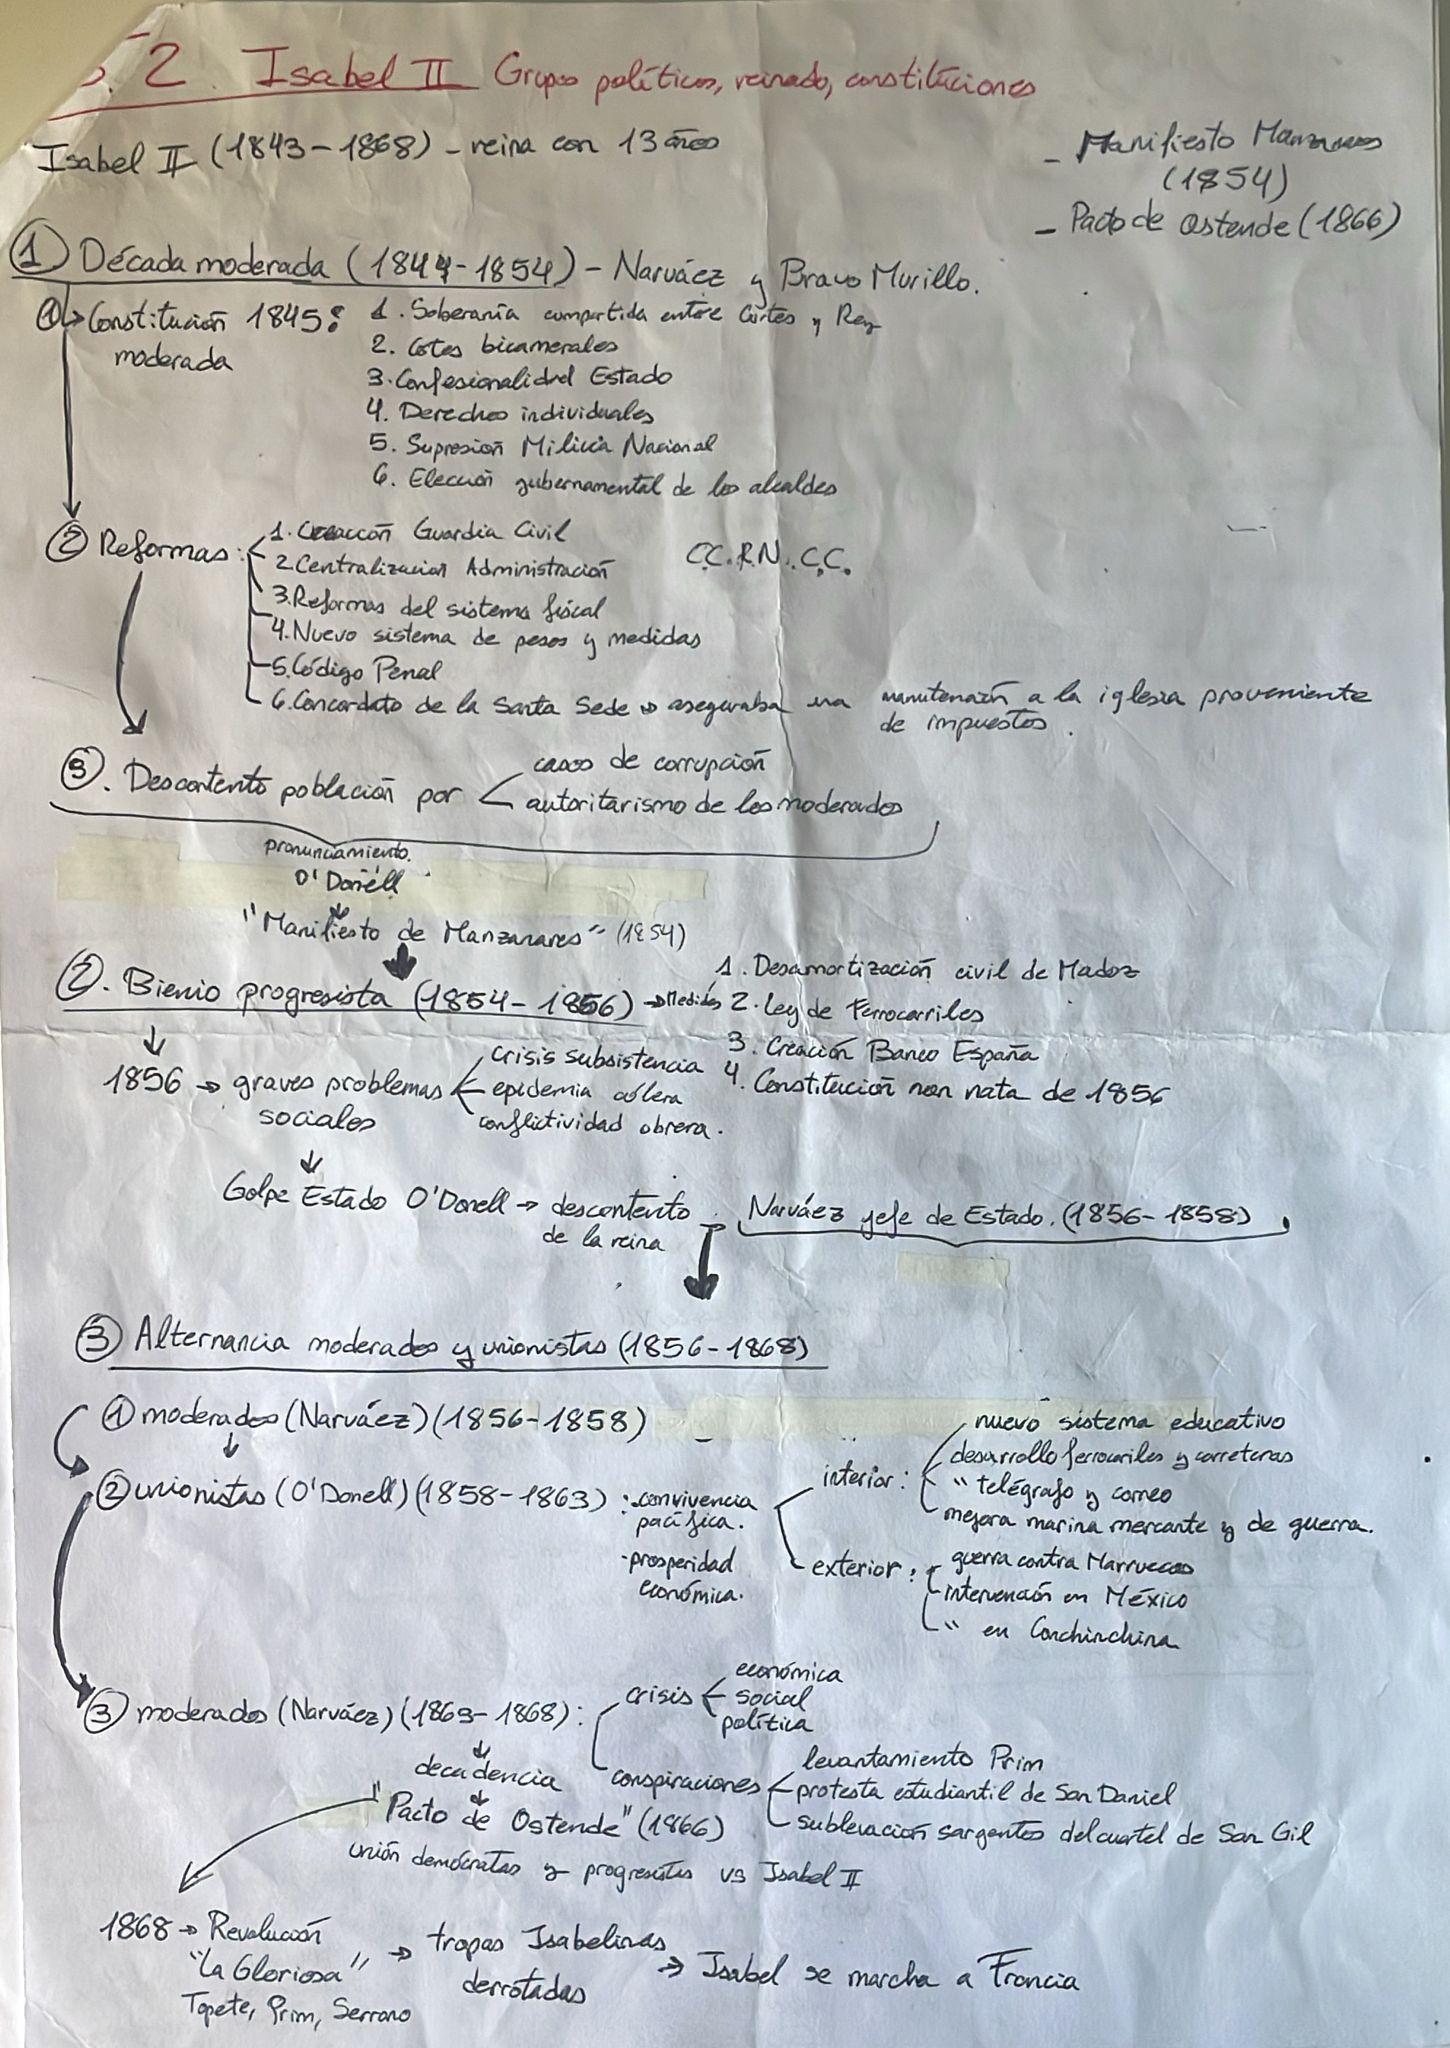 5.2 Isabel II Grupos políticos, reinado, constituciones
Isabel II (1843-1868) - reina con 13 años
- Manifiesto Manzanares
(1854)
- Pacto de Ostende (1866)
① Década moderada (1844-1854) - Narváez y Bravo Murillo.
① → Constitución 1845:
moderada
1. Soberanía compartida entre Cortes y Rey
2. Cotes bicamerales
3. Confesionalidad Estado
4. Derechos individuales
5. Supresión Milicia Nacional
6. Elección gubernamental de los alcaldes
② Reformas:
1. Creacción Guardia Civil
2. Centralización Administración
3. Reformas del sistema fiscal
4. Nuevo sistema de pesos y medidas
5. Código Penal
6. Concordato de la Santa Sede → aseguraba una manutención a la iglesia proveniente
de impuestos.
C.C.R.N.C.C.
③. Descontento población por
casos de corrupción
autoritarismo de los moderados
pronunciamiento.
O'Donéll
↓
"Manifiesto de Manzanares" (1854)
②. Bienio progresista (1854-1856) → Medidas
1. Desamortización civil de Madoz
2. Ley de Ferrocarriles
3. Creación Banco España
4. Constitución non nata de 1856
↓
1856 → graves problemas
sociales
crisis subsistencia
epidemia cólera
conflictividad obrera.
↓
Golpe Estado O'Donell → descontento
de la reina
→ Narváez jefe de Estado. (1856-1858)
③ Alternancia moderados y unionistas (1856-1868)
① moderados (Narváez) (1856-1858)
↓
② unionistas (O'Donell) (1858-1863):
· convivencia
pacífica.
· prosperidad
económica.
interior:
nuevo sistema educativo
desarrollo ferrocarriles y carreteras
" telégrafo y correo
mejora marina mercante y de guerra.
exterior:
guerra contra Marruecos
intervención en México
" en Conchinchina
③ moderados (Narváez) (1863-1868):
crisis
económica
social
política
conspiraciones
levantamiento Prim
protesta estudiantil de San Daniel
sublevación sargentos del cuartel de San Gil
↓
decadencia
↓
"Pacto de Ostende" (1866)
unión demócratas y progresistas vs Isabel II
1868 → Revolución
"La Gloriosa"
Topete, Prim, Serrano
→ tropas Isabelinas
derrotadas
→ Isabel se marcha a Francia